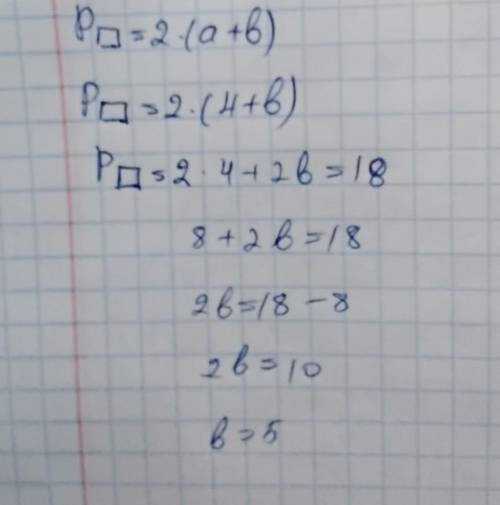 P□=2·(a+b)
P□=2·(4+b)
P□=2·4+2b=18
8+2b=18
2b=18-8
2b=10
b=5